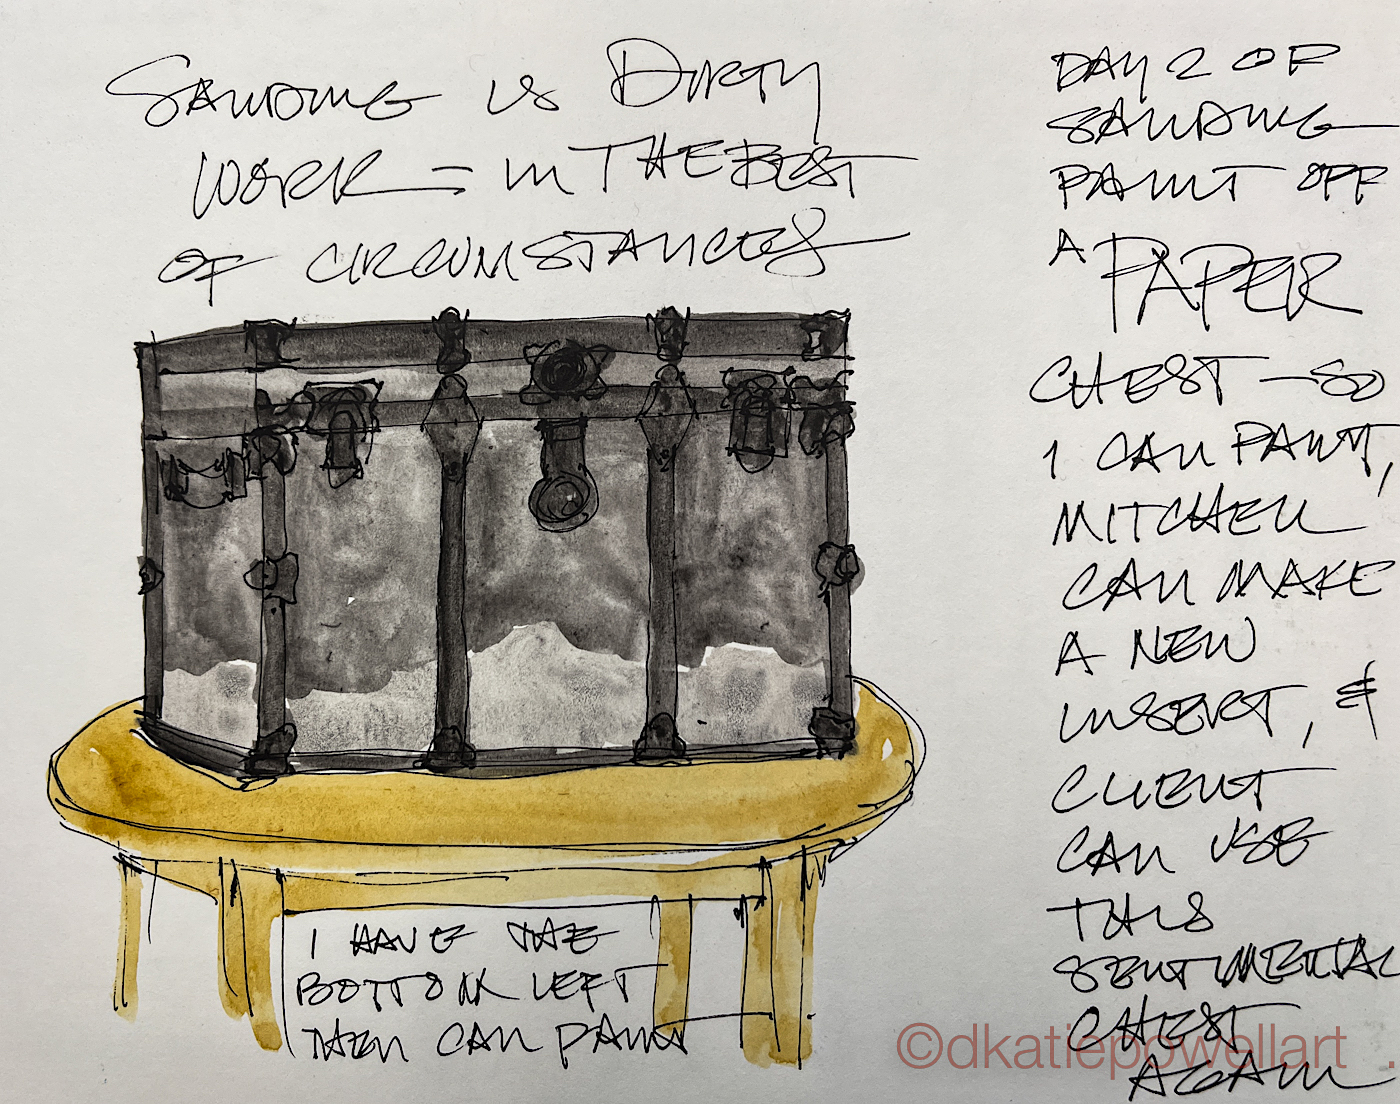 SANDING IS DIRTY
WORK - IN THE BEST
OF CIRCUMSTANCES
DAY 2 OF
SANDING
PAINT OFF
A PAPER
CHEST - SO
I CAN PAINT,
MITCHELL
CAN MAKE
A NEW
INSERT, &
CLIENT
CAN USE
THIS
SENTIMENTAL
CHEST
AGAIN
I HAVE THE
BOTTOM LEFT
THEN CAN PAINT
©dkatiepowellart .